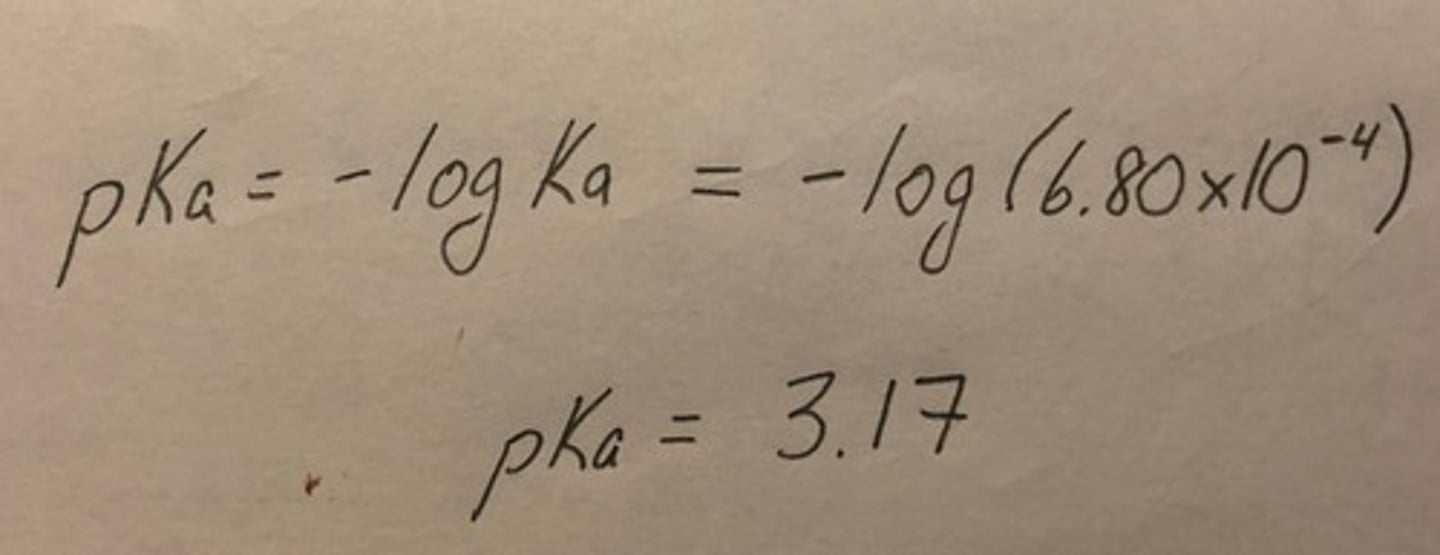 pKa = -log Ka = -log (6.80x10⁻⁴)
pKa = 3.17